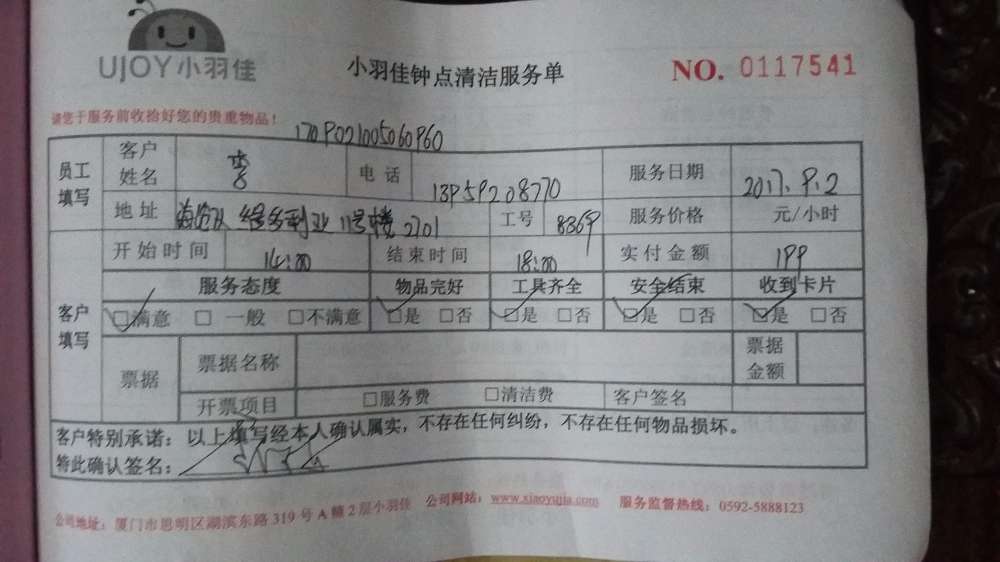 UJOY小羽佳
小羽佳钟点清洁服务单
NO. 0117541
请您于服务前收拾好您的贵重物品！
1709021005060960
员工填写 客户姓名 李 电话 13959208770 服务日期 2017.9.2
地址 维多利亚 11号楼 2701 工号 8369 服务价格 元/小时
客户填写 开始时间 14:00 结束时间 18:00 实付金额 199
服务态度 物品完好 工具齐全 安全结束 收到卡片
☑满意 □ 一般 □不满意 ☑是 □否 ☑是 □否 ☑是 □否 ☑是 □否
票据 票据名称 票据金额
开票项目 □服务费 □清洁费 客户签名
客户特别承诺：以上填写经本人确认属实，不存在任何纠纷，不存在任何物品损坏。
特此确认签名：
公司地址：厦门市思明区湖滨东路 319 号 A 幢 2 层小羽佳 公司网站：www.xiaoyujia.com 服务监督热线：0592-5888123